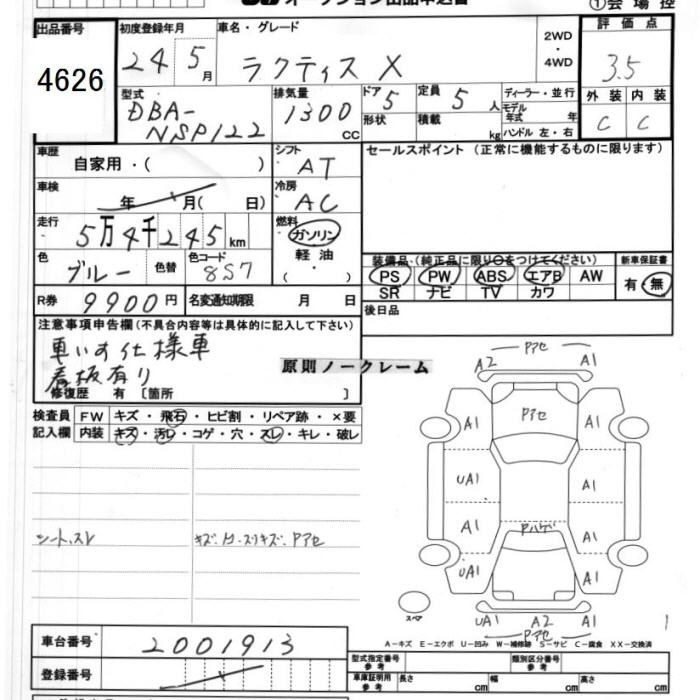 オークション出品申込書 ①会場控
出品番号 初度登録年月 車名・グレード 2WD・4WD 評価点
4626 24 5月 ラクティス X 3.5
型式 排気量 ドア 定員 ディーラー・並行 外装 内装
DBA-NSP122 1300 CC 5 5人 モデル年式 年 C C
形状 積載 kg ハンドル 左・右
車歴 シフト セールスポイント (正常に機能するものに限ります)
自家用・( ) AT
車検 冷房
年 月( 日) AC
走行 燃料
5万4千245km ガソリン
軽油
( ・ )
色 色替 色コード
ブルー 8S7
装備品・(純正品に限り○をつけてください) 新車保証書
PS PW ABS エアB AW 有・無
SR ナビ TV カワ
R券 9900円 名変通知期限 月 日 後日品
注意事項申告欄 (不具合内容等は具体的に記入して下さい)
車いす仕様車
看板有り
修復歴 有 [箇所 ]
原則ノークレーム
検査員記入欄 FW キズ・飛石・ヒビ割・リペア跡・×要
内装 キズ・汚レ・コゲ・穴・スレ・キレ・破レ
シート、スレ キズ・凹・スリキズ・Pアセ
Pアセ
A2 A1
A1 Pアセ A1
UA1 A1
A1 Pハゲ A1
UA1 A1
スペア UA1 A2 A1
Pアセ
1
A-キズ E-エクボ U-凹み W-補修跡 S-サビ C-腐食 XX-交換済
車台番号 2001913
型式指定番号 参考 類別区分番号 参考
登録番号 車庫証明用 参考 長さ cm 幅 cm 高さ cm